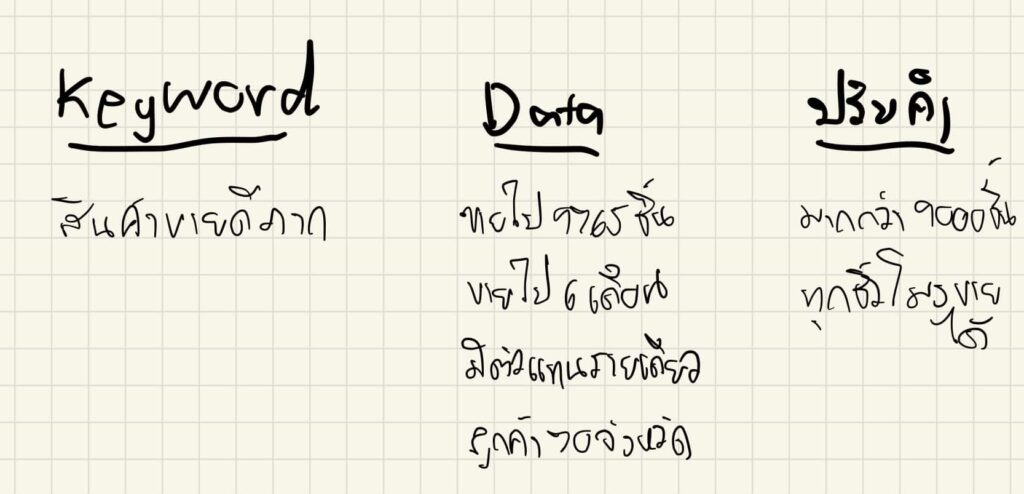 Keyword
สินค้าขายดีมาก
Data
ขายไป 9765 ชิ้น
ขายไป 6 เดือน
มีตัวแทนรายเดียว
ลูกค้า 70 จังหวัด
ปรับคำ
มากกว่า 9000 ชิ้น
ทุกชั่วโมงขาย
ได้